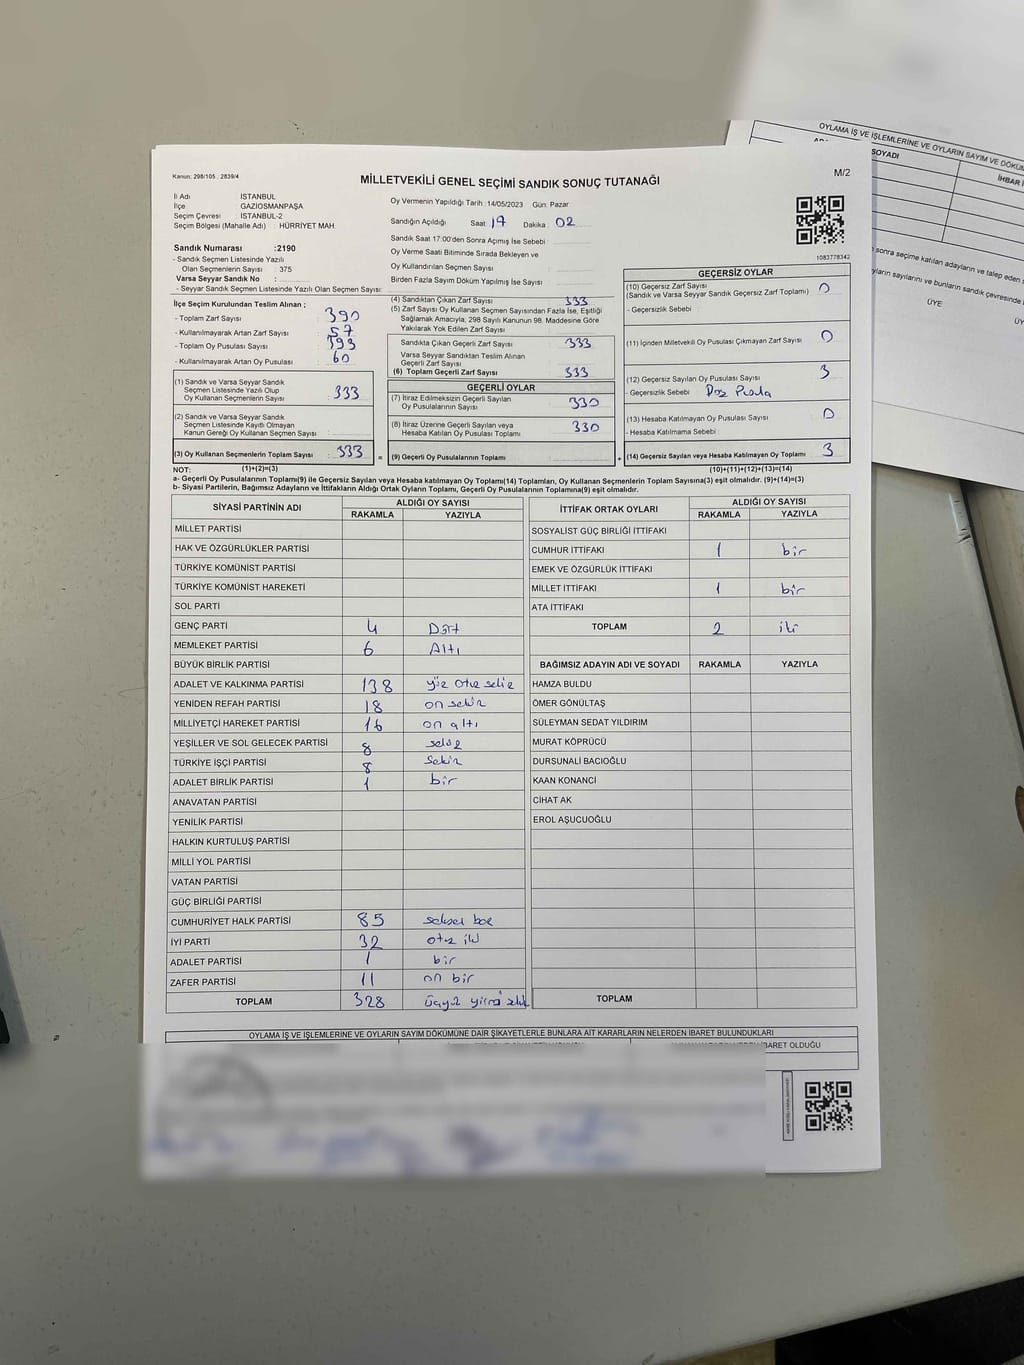 OYLAMA İŞ VE İŞLEMLERİNE VE OYLARIN SAYIM VE DÖKÜM
SOYADI
İHBAR
sonra seçime katılan adayların ve talep eden
yların sayılarını ve bunların sandık çevresinde
ÜYE
Kanun: 298/105 , 2839/4
MİLLETVEKİLİ GENEL SEÇİMİ SANDIK SONUÇ TUTANAĞI
M/2
İl Adı : İSTANBUL
İlçe : GAZİOSMANPAŞA
Seçim Çevresi : İSTANBUL-2
Seçim Bölgesi (Mahalle Adı) : HÜRRİYET MAH.
Sandık Numarası :2190
- Sandık Seçmen Listesinde Yazılı
Olan Seçmenlerin Sayısı : 375
Varsa Seyyar Sandık No :
- Seyyar Sandık Seçmen Listesinde Yazılı Olan Seçmen Sayısı:
Oy Vermenin Yapıldığı Tarih :14/05/2023 Gün: Pazar
Sandığın Açıldığı Saat: 17 Dakika : 02
Sandık Saat 17:00'den Sonra Açımış İse Sebebi :
Oy Verme Saati Bitiminde Sırada Bekleyen ve
Oy Kullandırılan Seçmen Sayısı :
Birden Fazla Sayım Döküm Yapılmış İse Sayısı :
1083778342
İlçe Seçim Kurulundan Teslim Alınan ;
- Toplam Zarf Sayısı : 390
- Kullanılmayarak Artan Zarf Sayısı : 57
- Toplam Oy Pusulası Sayısı : 393
- Kullanılmayarak Artan Oy Pusulası : 60
(1) Sandık ve Varsa Seyyar Sandık
Seçmen Listesinde Yazılı Olup
Oy Kullanan Seçmenlerin Sayısı : 333
(2) Sandık ve Varsa Seyyar Sandık
Seçmen Listesinde Kayıtlı Olmayan
Kanun Gereği Oy Kullanan Seçmen Sayısı :
(3) Oy Kullanan Seçmenlerin Toplam Sayısı : 333
(4) Sandıktan Çıkan Zarf Sayısı : 333
(5) Zarf Sayısı Oy Kullanan Seçmen Sayısından Fazla İse, Eşitliği
Sağlamak Amacıyla; 298 Sayılı Kanunun 98. Maddesine Göre
Yakılarak Yok Edilen Zarf Sayısı :
Sandıkta Çıkan Geçerli Zarf Sayısı : 333
Varsa Seyyar Sandıktan Teslim Alınan
Geçerli Zarf Sayısı :
(6) Toplam Geçerli Zarf Sayısı : 333
GEÇERLİ OYLAR
(7) İtiraz Edilmeksizin Geçerli Sayılan
Oy Pusulalarının Sayısı : 330
(8) İtiraz Üzerine Geçerli Sayılan veya
Hesaba Katılan Oy Pusulası Toplamı : 330
= (9) Geçerli Oy Pusulalarının Toplamı :
GEÇERSİZ OYLAR
(10) Geçersiz Zarf Sayısı : 0
(Sandık ve Varsa Seyyar Sandık Geçersiz Zarf Toplamı)
- Geçersizlik Sebebi :
(11) İçinden Milletvekili Oy Pusulası Çıkmayan Zarf Sayısı : 0
(12) Geçersiz Sayılan Oy Pusulası Sayısı : 3
- Geçersizlik Sebebi :
(13) Hesaba Katılmayan Oy Pusulası Sayısı : 0
- Hesaba Katılmama Sebebi :
+ (14) Geçersiz Sayılan veya Hesaba Katılmayan Oy Toplamı : 3
NOT: (1)+(2)=(3) (10)+(11)+(12)+(13)=(14)
a- Geçerli Oy Pusulalarının Toplamı(9) ile Geçersiz Sayılan veya Hesaba katılmayan Oy Toplamı(14) Toplamları, Oy Kullanan Seçmenlerin Toplam Sayısına(3) eşit olmalıdır. (9)+(14)=(3)
b- Siyasi Partilerin, Bağımsız Adayların ve İttifakların Aldığı Ortak Oyların Toplamı, Geçerli Oy Pusulalarının Toplamına(9) eşit olmalıdır.
SİYASİ PARTİNİN ADI ALDIĞI OY SAYISI
RAKAMLA YAZIYLA
MİLLET PARTİSİ
HAK VE ÖZGÜRLÜKLER PARTİSİ
TÜRKİYE KOMÜNİST PARTİSİ
TÜRKİYE KOMÜNİST HAREKETİ
SOL PARTİ
GENÇ PARTİ 4 Dört
MEMLEKET PARTİSİ 6 Altı
BÜYÜK BİRLİK PARTİSİ
ADALET VE KALKINMA PARTİSİ 138 yüz otuz sekiz
YENİDEN REFAH PARTİSİ 18 on sekiz
MİLLİYETÇİ HAREKET PARTİSİ 16 on altı
YEŞİLLER VE SOL GELECEK PARTİSİ 8 sekiz
TÜRKİYE İŞÇİ PARTİSİ 8 Sekiz
ADALET BİRLİK PARTİSİ 1 bir
ANAVATAN PARTİSİ
YENİLİK PARTİSİ
HALKIN KURTULUŞ PARTİSİ
MİLLİ YOL PARTİSİ
VATAN PARTİSİ
GÜÇ BİRLİĞİ PARTİSİ
CUMHURİYET HALK PARTİSİ 85 seksen beş
İYİ PARTİ 32 otuz iki
ADALET PARTİSİ 1 bir
ZAFER PARTİSİ 11 on bir
TOPLAM 328 üçyüz yirmi sekiz
İTTİFAK ORTAK OYLARI ALDIĞI OY SAYISI
RAKAMLA YAZIYLA
SOSYALİST GÜÇ BİRLİĞİ İTTİFAKI
CUMHUR İTTİFAKI 1 bir
EMEK VE ÖZGÜRLÜK İTTİFAKI
MİLLET İTTİFAKI 1 bir
ATA İTTİFAKI
TOPLAM 2 iki
BAĞIMSIZ ADAYIN ADI VE SOYADI RAKAMLA YAZIYLA
HAMZA BULDU
ÖMER GÖNÜLTAŞ
SÜLEYMAN SEDAT YILDIRIM
MURAT KÖPRÜCÜ
DURSUNALİ BACIOĞLU
KAAN KONANCİ
CİHAT AK
EROL AŞUCUOĞLU
TOPLAM
OYLAMA İŞ VE İŞLEMLERİNE VE OYLARIN SAYIM DÖKÜMÜNE DAİR ŞİKAYETLERLE BUNLARA AİT KARARLARIN NELERDEN İBARET BULUNDUKLARI
İBARET OLDUĞU